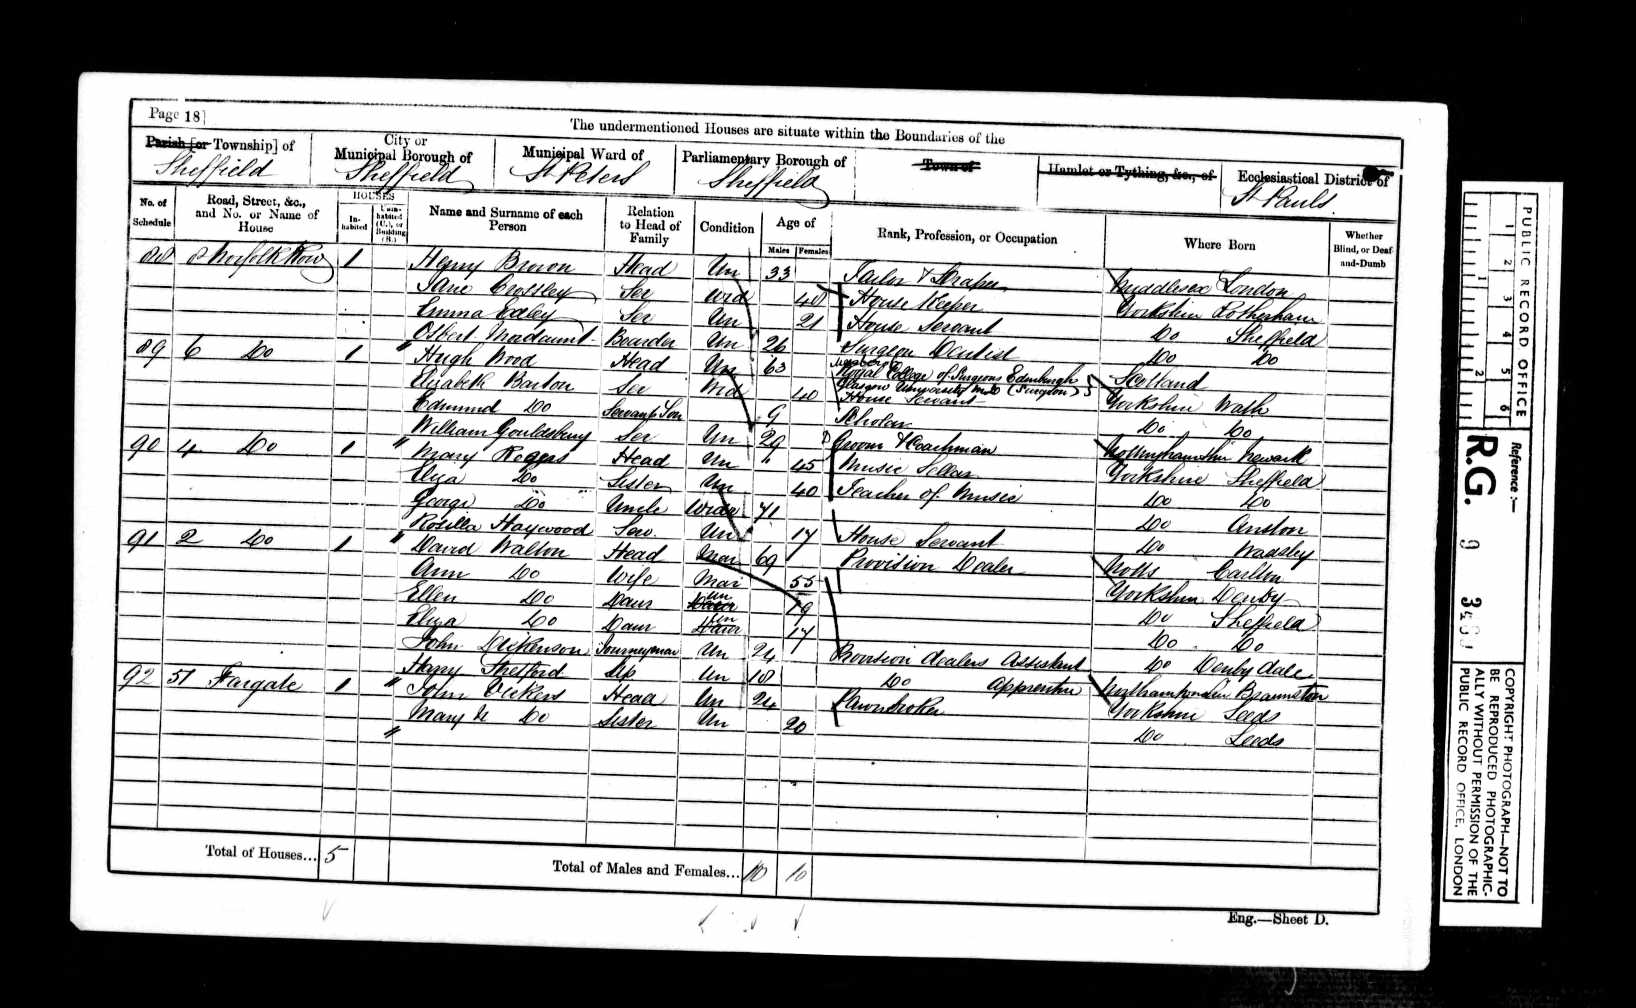 Page 18]
The undermentioned Houses are situate within the Boundaries of the
Parish [or Township] of
City or Municipal Borough of
Municipal Ward of
Parliamentary Borough of
Town of
Hamlet or Tything, &c., of
Ecclesiastical District of
Sheffield Sheffield St Peters Sheffield St Pauls
No. of Schedule
Road, Street, &c., and No. or Name of House
HOUSES
In-habited
Unin-habited (U.), or Building (B.)
Name and Surname of each Person
Relation to Head of Family
Condition
Age of
Males Females
Rank, Profession, or Occupation
Where Born
Whether Blind, or Deaf-and-Dumb
88 8 Norfolk Row 1 Henry Brown Head Un 33 Tailor & Draper Middlesex London
Jane Crossley Ser Wid 48 House Keeper Yorkshire Rotherham
Emma Exley Ser Un 21 House Servant Do Sheffield
Osbert Boarder Un 26 Surgeon Dentist Do Do
89 6 Do 1 Hugh Wood Head Un 63 Royal College of Surgeons Edinburgh Glasgow University (Surgeon) Scotland
Elizabeth Barton Ser 40 House Servant Yorkshire Wath
Edmund Do Servants Son 9 Scholar Do Do
William Gouldsbury Ser Un 29 Groom & Coachman Nottinghamshire Newark
90 4 Do 1 Mary Rogers Head Un 45 Music Seller Yorkshire Sheffield
Eliza Do Sister Un 40 Teacher of Music Do Do
George Do Uncle Widr 71 Do Anston
Rosilla Haywood Serv. Un 17 House Servant Do Wadsley
91 2 Do 1 David Walton Head Mar 69 Provision Dealer Notts Carlton
Ann Do Wife Mar 55 Yorkshire Denby
Ellen Do Daur Un 19 Do Sheffield
Eliza Do Daur Un 17 Do Do
John Dickenson Journeyman Un 24 Provision dealers Assistant Do Denby dale
Harry Thetford Un 18 Do apprentice Braunston
92 51 Fargate 1 John Vickers Head Un 24 Pawnbroker Yorkshire Leeds
Mary Do Sister Un 20 Do Leeds
Total of Houses... 5
Total of Males and Females... 10 10
Eng.—Sheet D.
PUBLIC RECORD OFFICE
1 2 3 4 5 6
1 2
Reference :—
R.G. 9
COPYRIGHT PHOTOGRAPH—NOT TO
BE REPRODUCED PHOTOGRAPHIC-
ALLY WITHOUT PERMISSION OF THE
PUBLIC RECORD OFFICE, LONDON